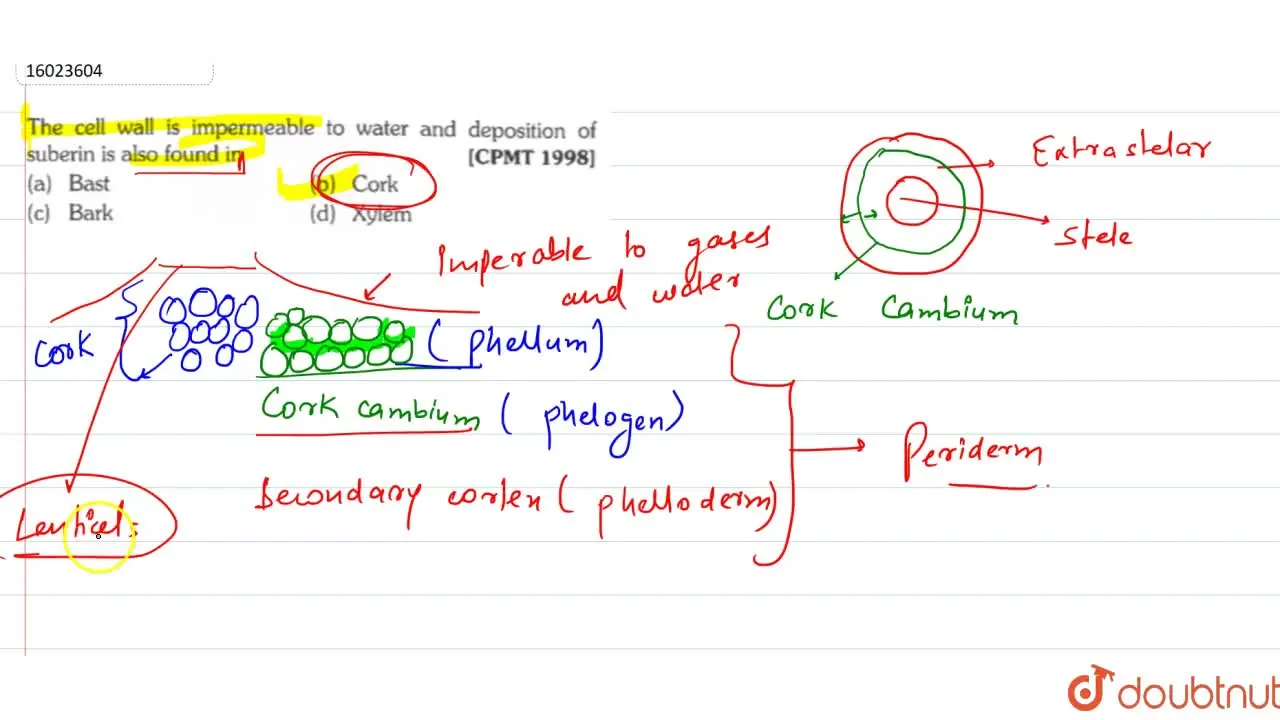 16023604
The cell wall is impermeable to water and deposition of
suberin is also found in
[CPMT 1998]
(a) Bast
(b) Cork
(c) Bark
(d) Xylem
Extrastelar
Stele
Cork Cambium
Imperable to gases
and water
Cork
(phellum)
Cork cambium (phelogen)
Secondary cortex (phelloderm)
Periderm
Lenticels
doubtnut